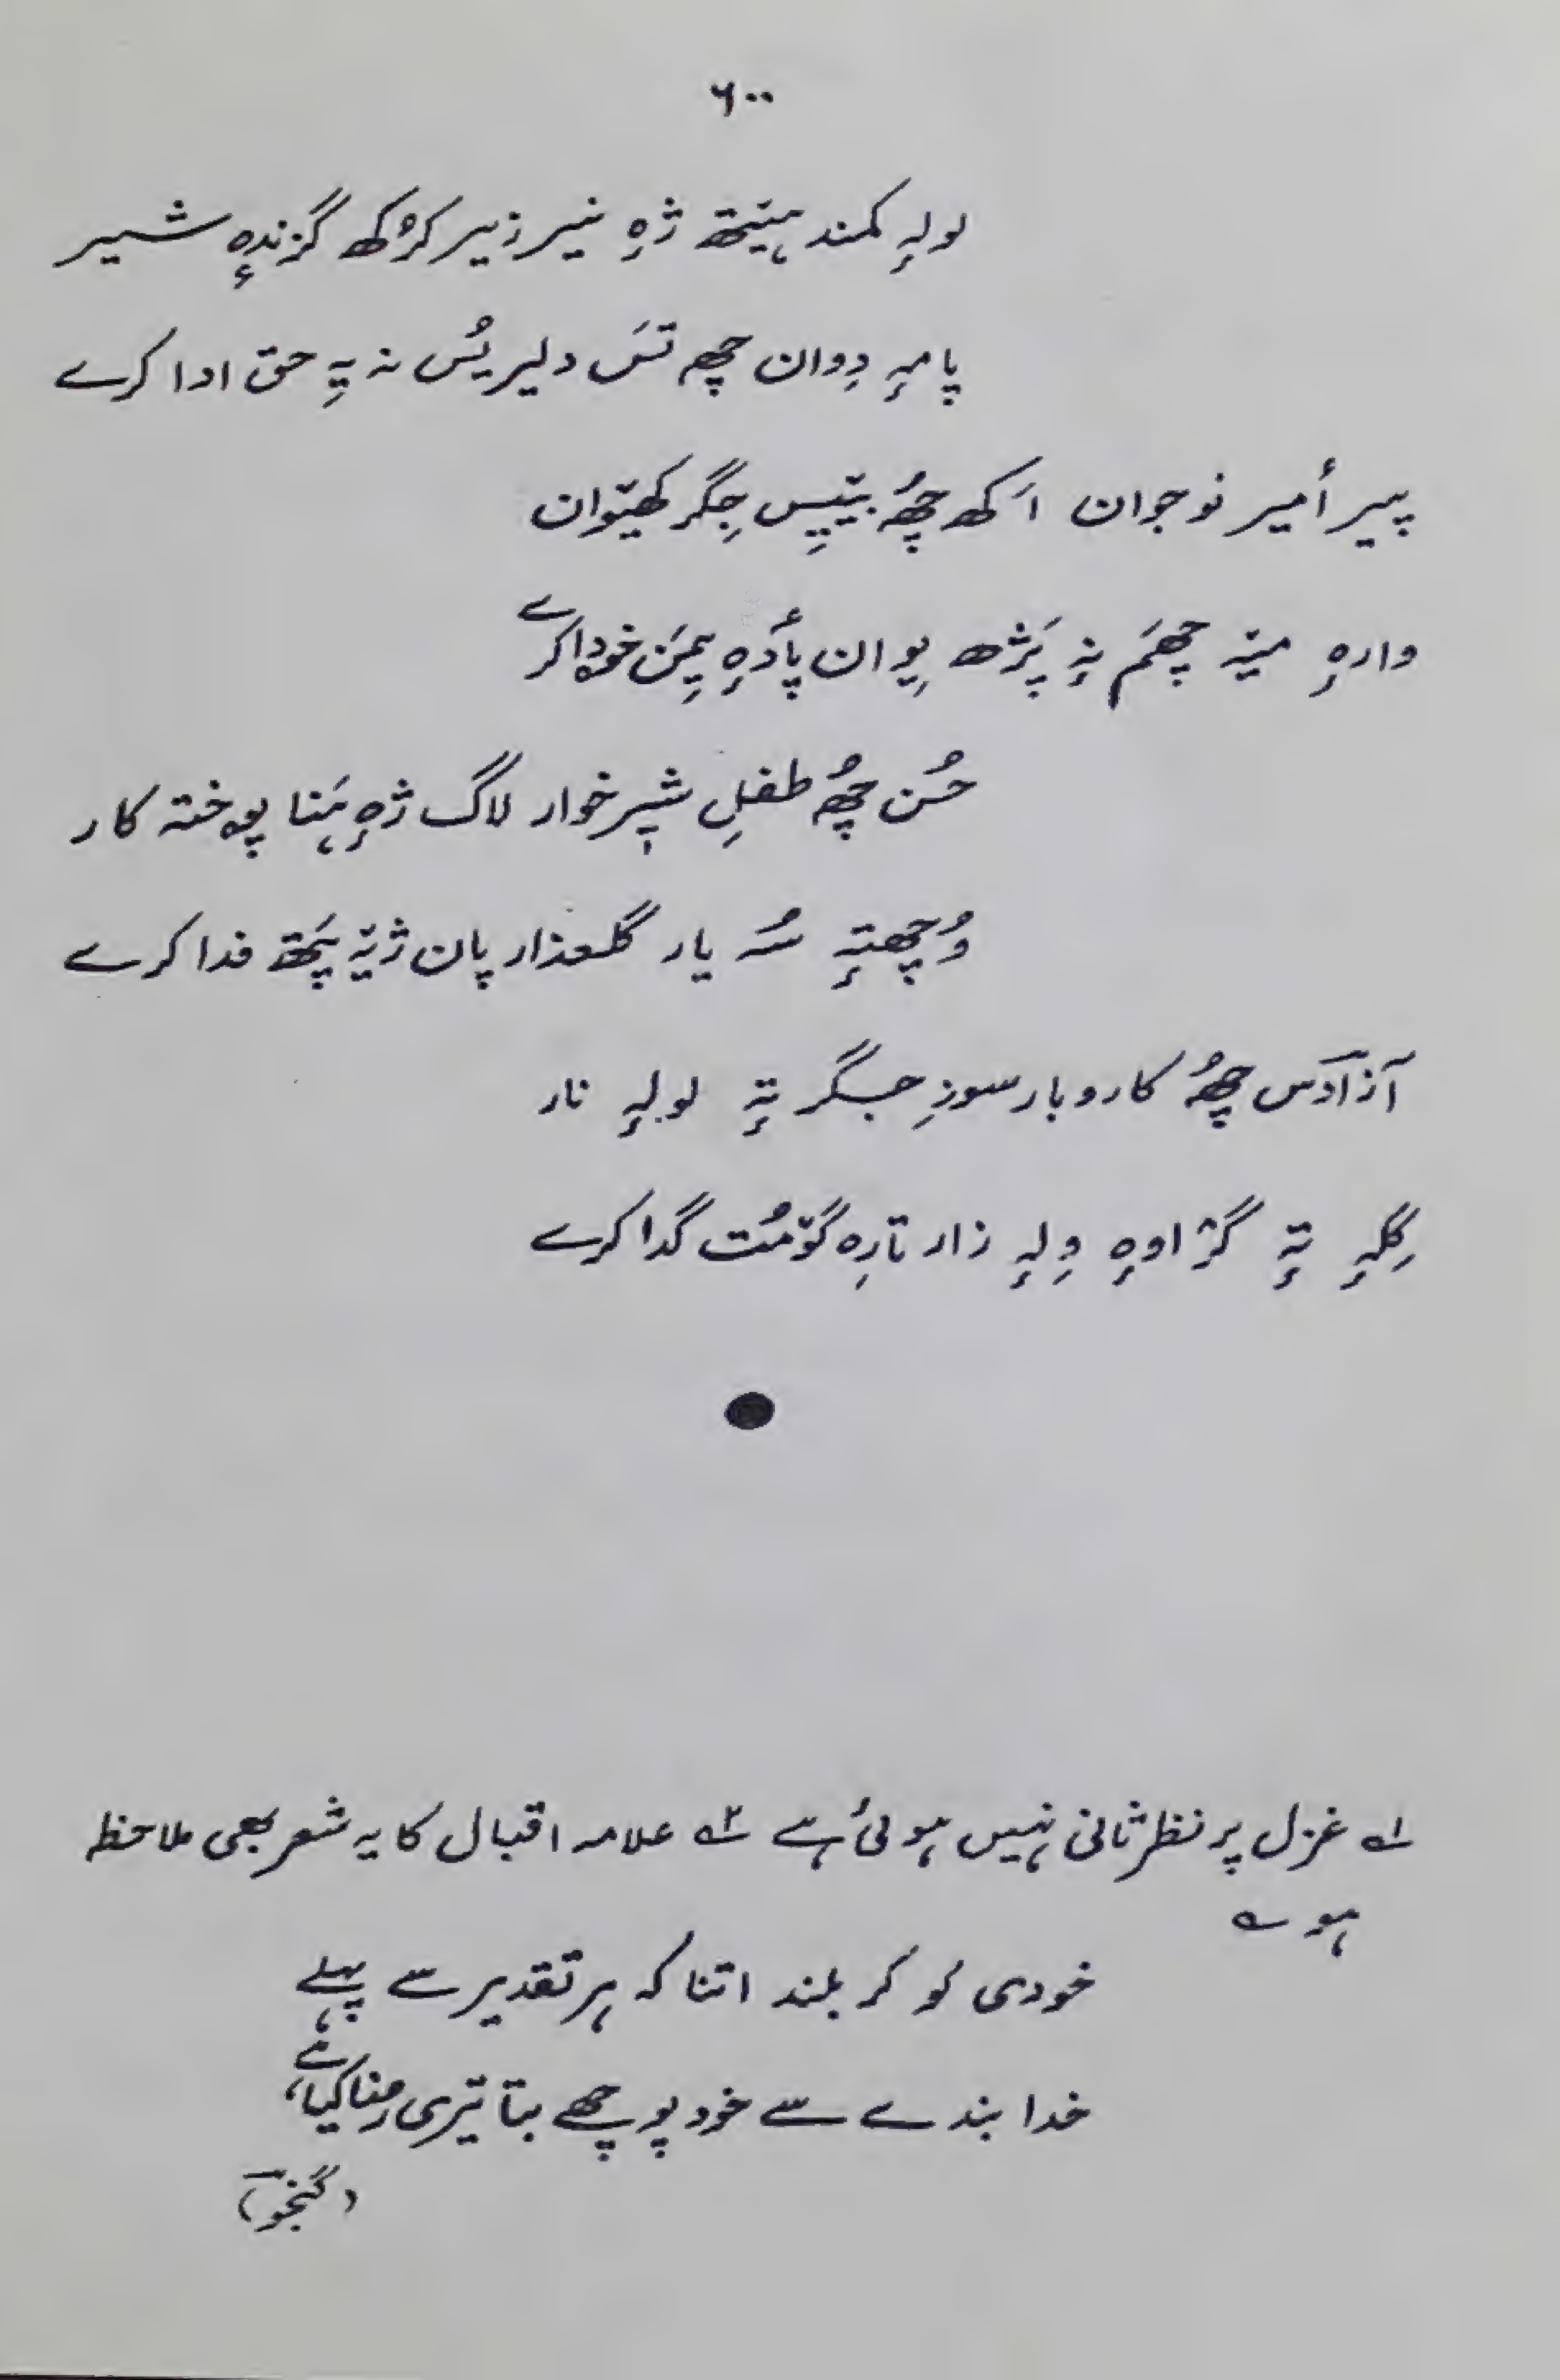 ۶۰۰
لولہٕ کمند ہیتھ ژٕہ نیر زیر کرٛکھ گزندٕہ شیر
پامہٕ دِوان چھ تَس دلیر یُس نہ یہِ حق ادا کرے
پیر أمیر نوجوان اَکھ چھُ بییِس جِگر کھیوان
وارٕہ میہٚ چھَم نہٕ پَژھ یِوان پأدٕہ یِمَن خودا کرے
حُسن چھُ طفلِ شیٖرخوار لاگ ژٕہ ہَنا پوختہ کار
وُچھتہٕ سُہ یار گلعذار پان ژیہٚ پَتھ فدا کرے
آزادَس چھُ کاروبار سوزِ جگر تہٕ لولہٕ نار
گِلہٕ تہٕ گژاوٕہ وِلہٕ زار تارِہ گوٚمُت گدا کرے
●
۱؎ غزل پر نظرثانی نہیں ہوئی ہے ۲؎ علامہ اقبال کا یہ شعر بھی ملاحظہ
ہو ؎
خودی کو کر بلند اتنا کہ ہر تقدیر سے پہلے
خدا بندے سے خود پوچھے بتا تیری رضا کیا ہے
(گنجوؔ)